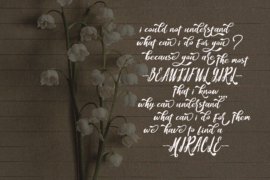 i could not understand
what can i do for you?
because you are the most
BEAUTIFUL GIRL
that i know
why can understand,,,
what can i do for them
we have to find a
MIRACLE